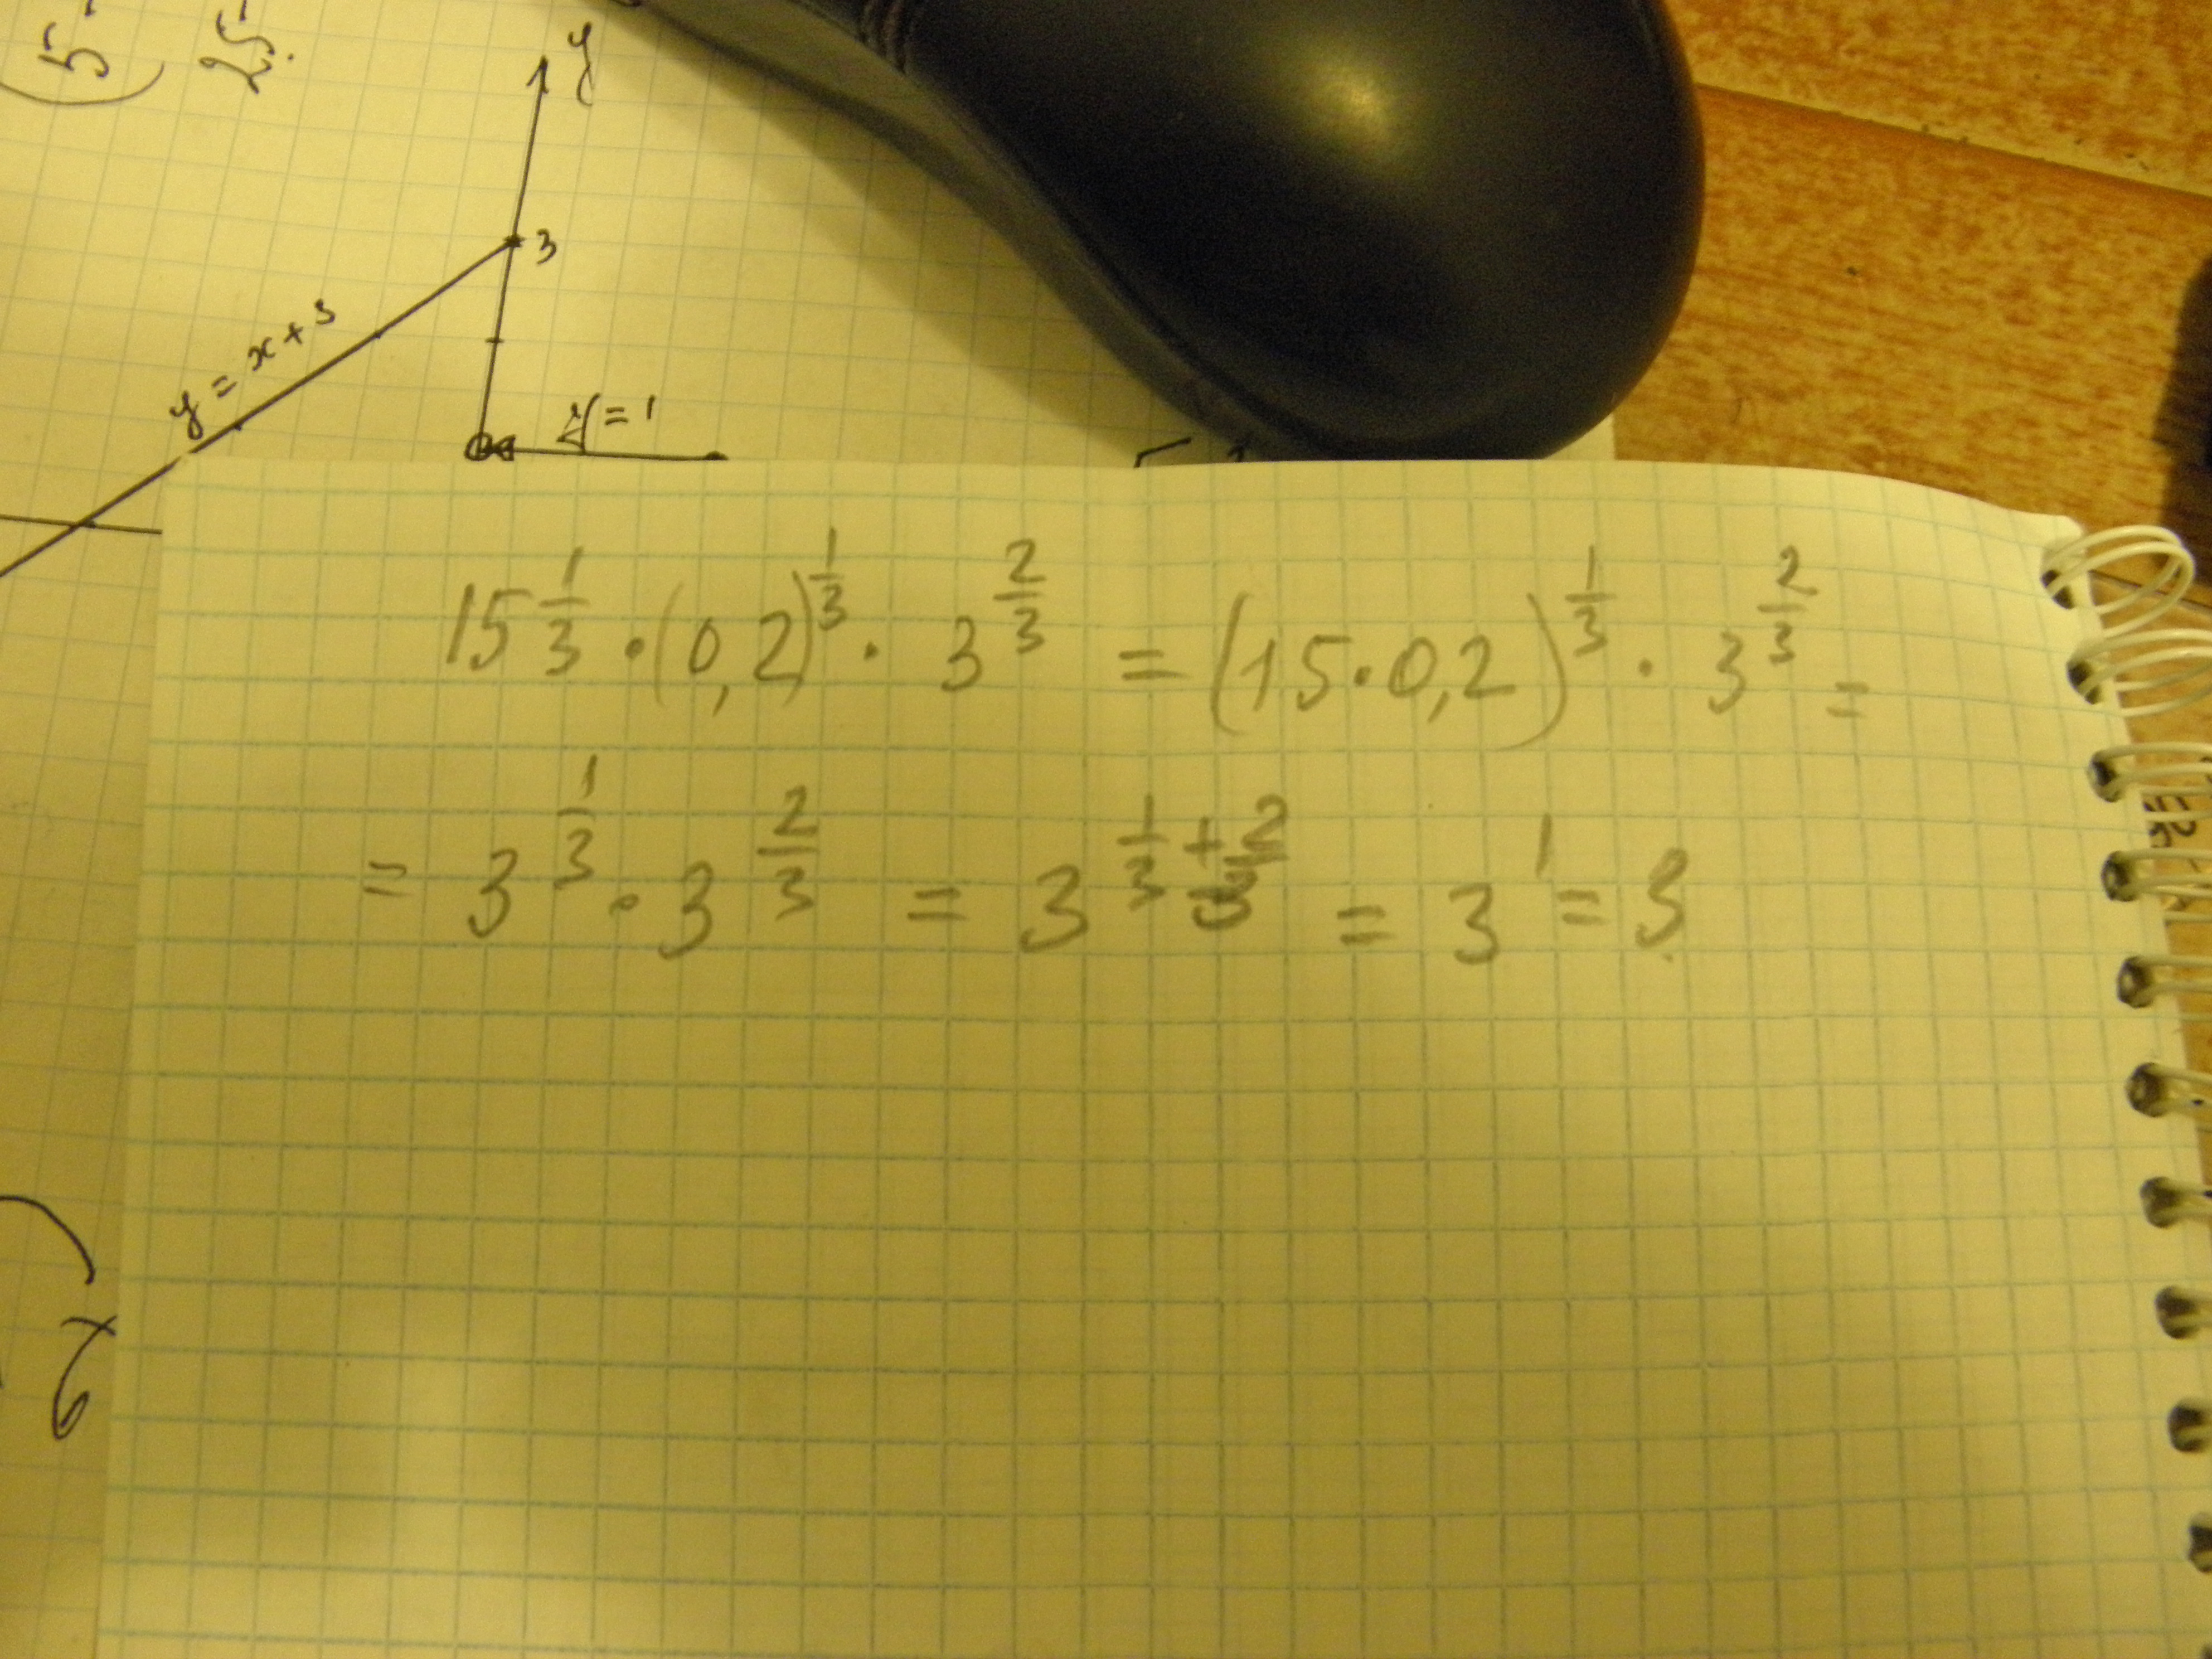 5
25
y
3
y = x + 3
y = 1
15^(1/3) · (0,2)^(1/3) · 3^(2/3) = (15 · 0,2)^(1/3) · 3^(2/3) =
= 3^(1/3) · 3^(2/3) = 3^(1/3 + 2/3) = 3^1 = 3